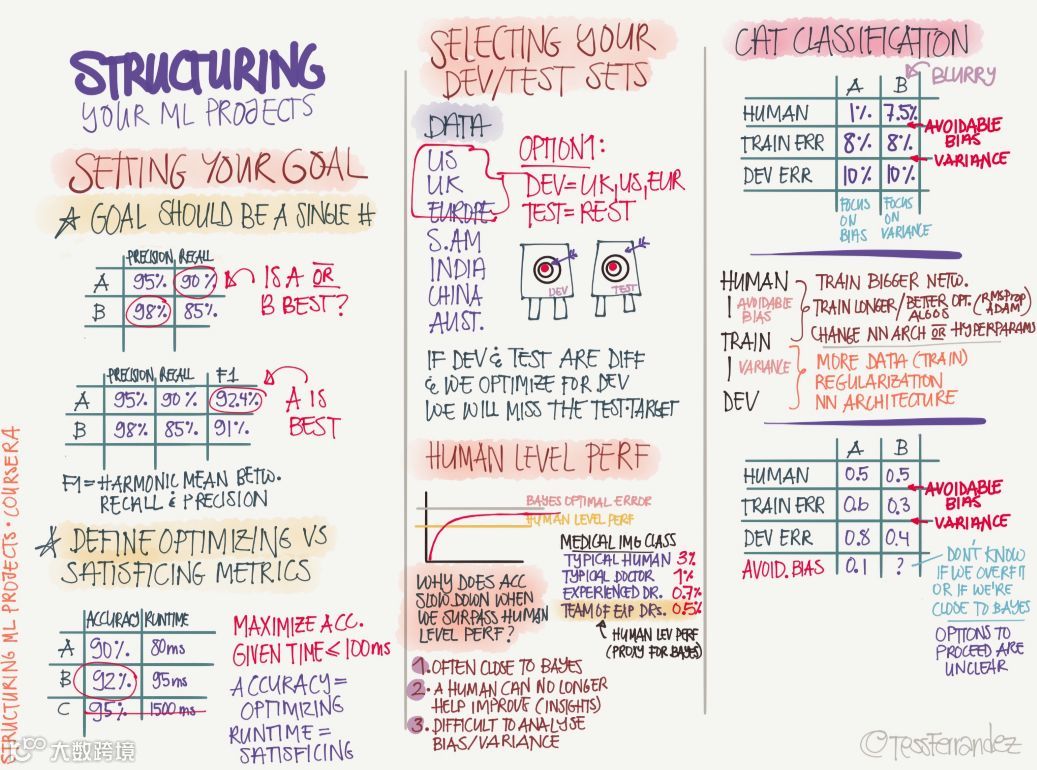 STRUCTURING
YOUR ML PROJECTS
SETTING YOUR GOAL
★ GOAL SHOULD BE A SINGLE #
PRECISION RECALL
A 95% 90%
B 98% 85%
IS A OR
B BEST?
PRECISION RECALL F1
A 95% 90% 92.4%
B 98% 85% 91%
A IS
BEST
F1 = HARMONIC MEAN BETW.
RECALL & PRECISION
★ DEFINE OPTIMIZING VS
SATISFICING METRICS
ACCURACY RUNTIME
A 90% 80ms
B 92% 95ms
C 95% 1500 ms
MAXIMIZE ACC.
GIVEN TIME ≤ 100ms
ACCURACY =
OPTIMIZING
RUNTIME =
SATISFICING
STRUCTURING ML PROJECTS · COURSERA
大数跨境
SELECTING YOUR
DEV/TEST SETS
DATA
US
UK
EUROPE
S.AM
INDIA
CHINA
AUST.
OPTION1:
DEV = UK, US, EUR
TEST = REST
DEV
TEST
IF DEV & TEST ARE DIFF
& WE OPTIMIZE FOR DEV
WE WILL MISS THE TEST-TARGET
HUMAN LEVEL PERF
BAYES OPTIMAL ERROR
HUMAN LEVEL PERF
MEDICAL IMG CLASS
TYPICAL HUMAN 3%
TYPICAL DOCTOR 1%
EXPERIENCED DR. 0.7%
TEAM OF EXP DRS. 0.5%
HUMAN LEV PERF
(PROXY FOR BAYES)
WHY DOES ACC
SLOW DOWN WHEN
WE SURPASS HUMAN
LEVEL PERF?
1. OFTEN CLOSE TO BAYES
2. A HUMAN CAN NO LONGER
HELP IMPROVE (INSIGHTS)
3. DIFFICULT TO ANALYSE
BIAS/VARIANCE
CAT CLASSIFICATION
BLURRY
A B
HUMAN 1% 7.5%
TRAIN ERR 8% 8%
DEV ERR 10% 10%
AVOIDABLE
BIAS
VARIANCE
FOCUS
ON
BIAS
FOCUS
ON
VARIANCE
HUMAN
AVOIDABLE
BIAS
TRAIN
VARIANCE
DEV
TRAIN BIGGER NETW.
TRAIN LONGER/BETTER OPT. ALGOS (RMSProp ADAM)
CHANGE NN ARCH OR HYPERPARAMS
MORE DATA (TRAIN)
REGULARIZATION
NN ARCHITECTURE
A B
HUMAN 0.5 0.5
TRAIN ERR 0.6 0.3
DEV ERR 0.8 0.4
AVOID. BIAS 0.1 ?
AVOIDABLE
BIAS
VARIANCE
DON'T KNOW
IF WE OVERFIT
OR IF WE'RE
CLOSE TO BAYES
OPTIONS TO
PROCEED ARE
UNCLEAR
@TessFerrandez